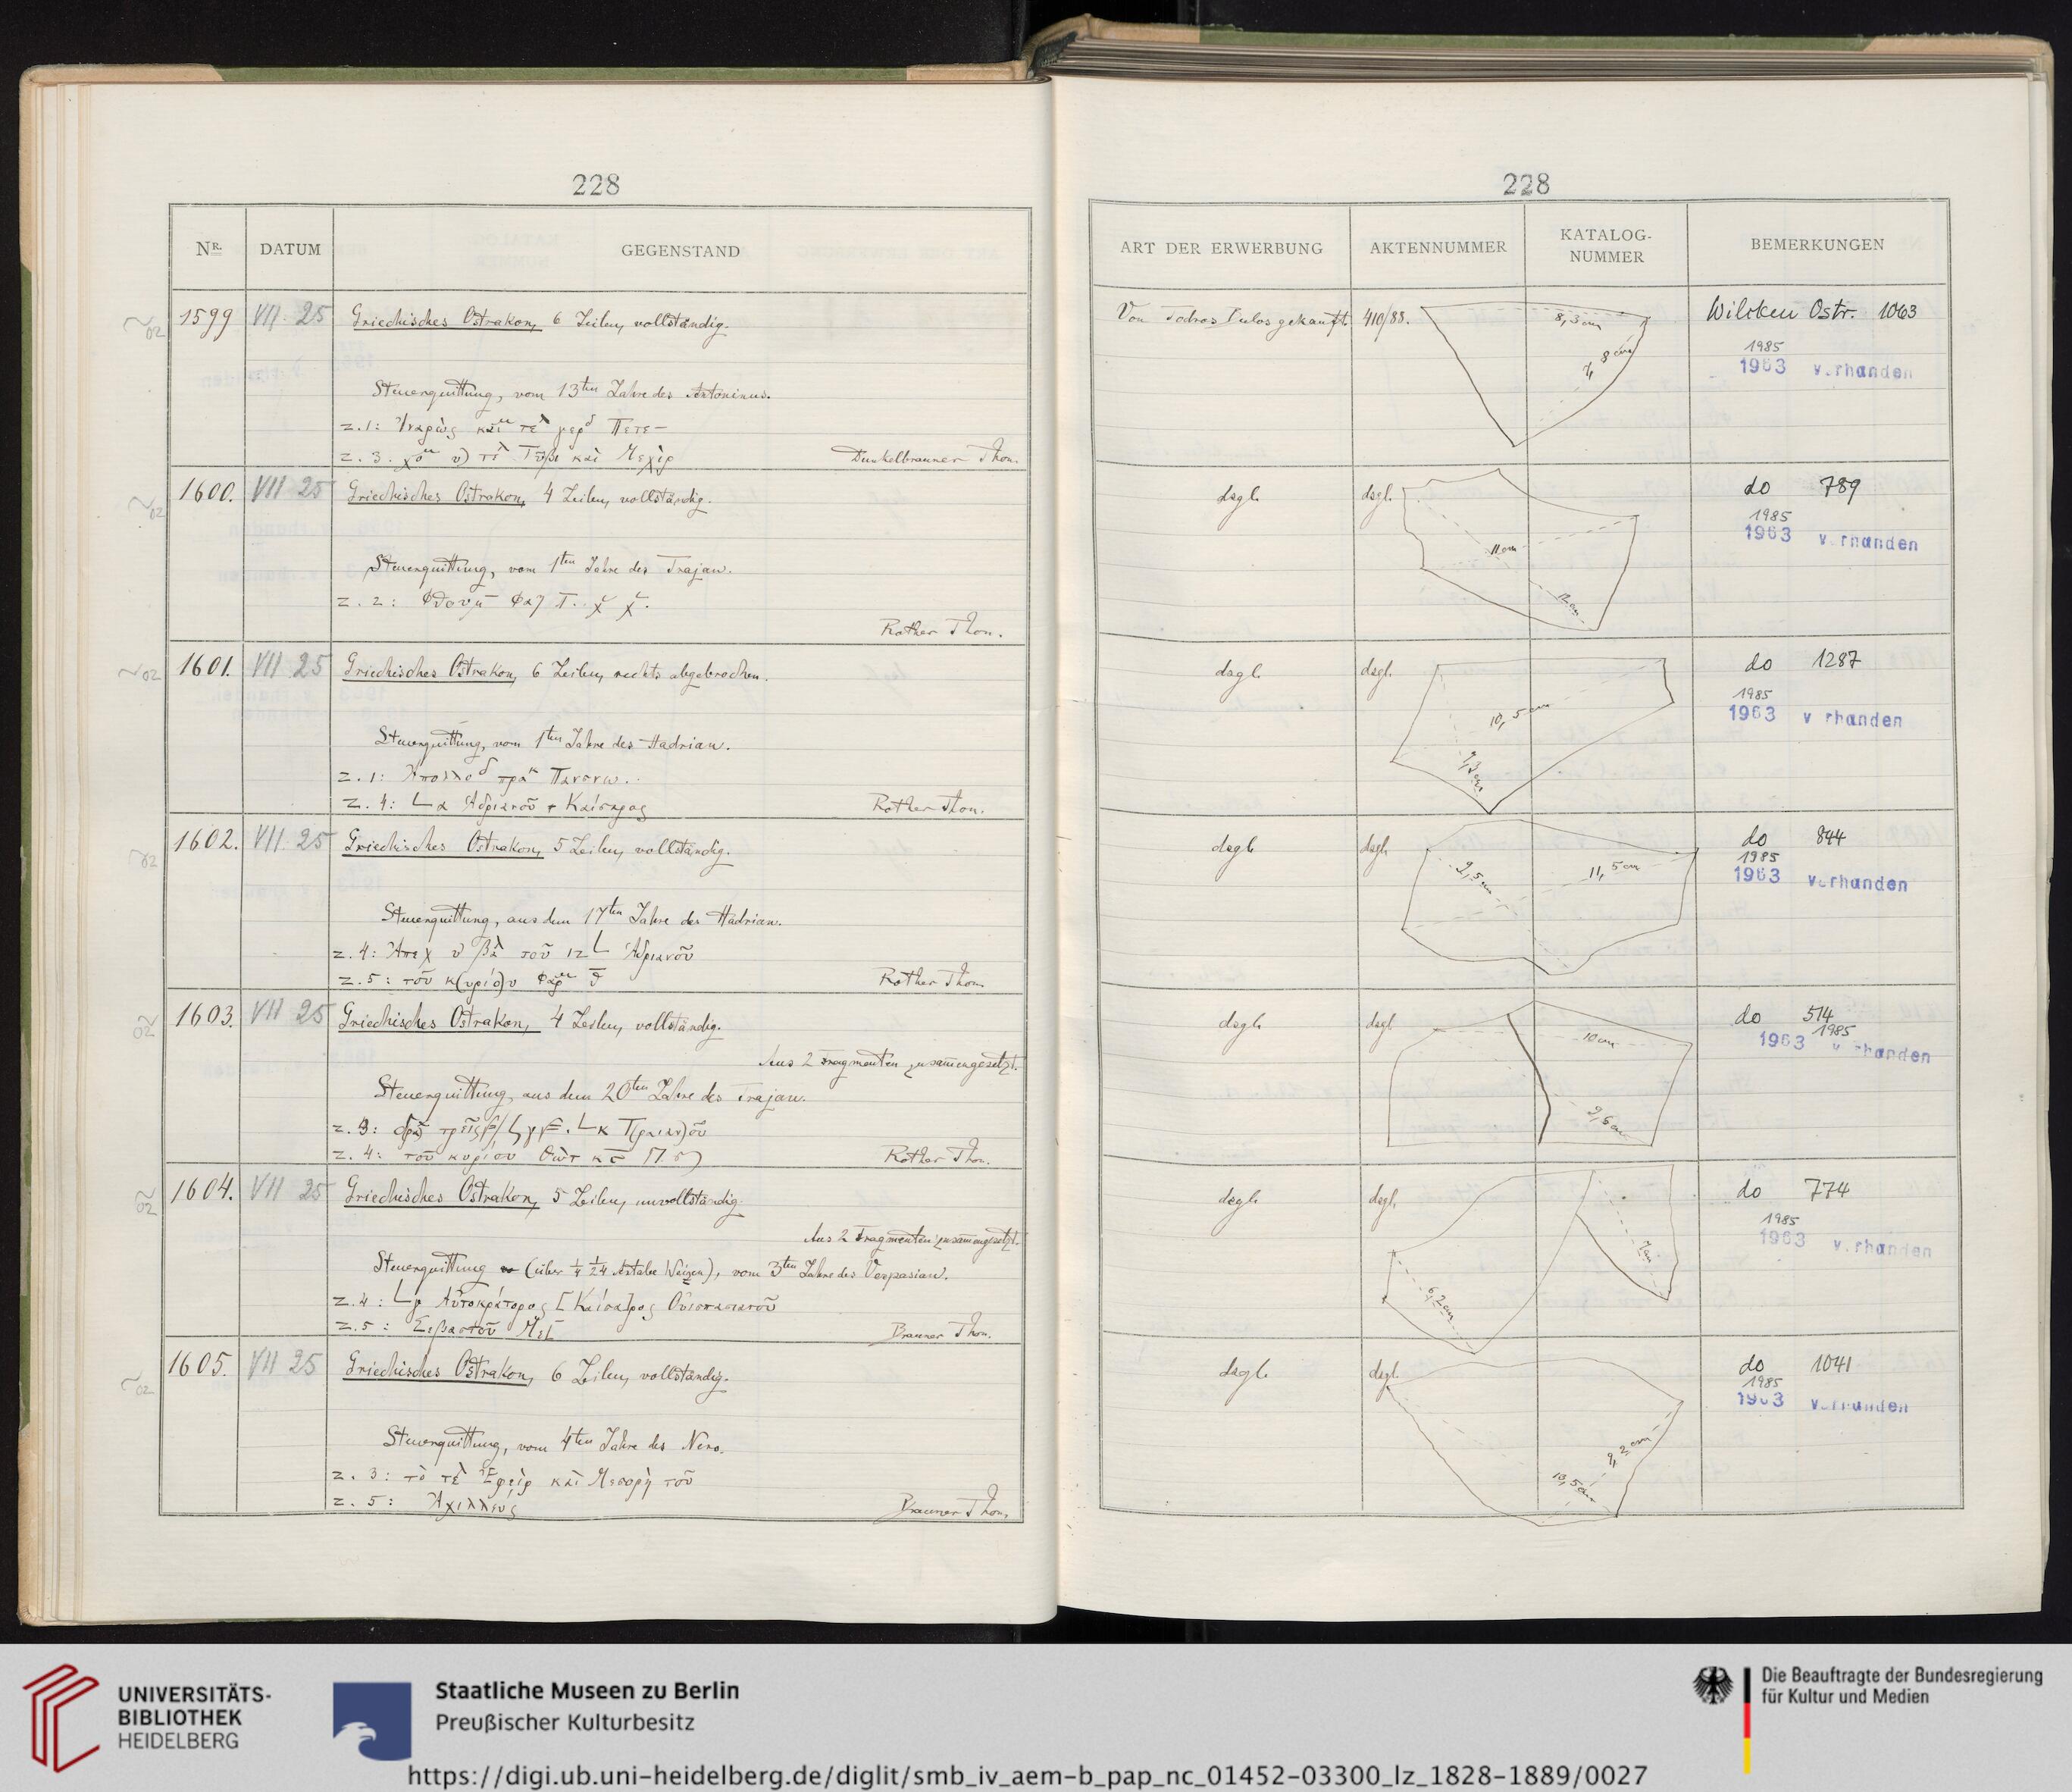 228
NR. DATUM GEGENSTAND
1599 VII 25 Griechisches Ostrakon, 6 Zeilen, vollständig.
Steuerquittung, vom 13ten Jahre des Antoninus.
Z. 1:
Z. 3. Τῦβι καὶ Μεχὶρ Dunkelbrauner Thon.
1600. VII 25 Griechisches Ostrakon, 4 Zeilen, vollständig.
Steuerquittung, vom 1ten Jahre des Trajan.
Z. 2:
Rother Thon.
1601. VII 25 Griechisches Ostrakon, 6 Zeilen, rechts abgebrochen.
Steuerquittung, vom 1ten Jahre des Hadrian.
Z. 1:
Z. 4: Ἁδριανοῦ Καίσαρος Rother Thon.
1602. VII 25 Griechisches Ostrakon, 5 Zeilen, vollständig.
Steuerquittung, aus dem 17ten Jahre des Hadrian.
Z. 4: τοῦ ιζ Ἁδριανοῦ
Z. 5: τοῦ κ(υρίο)υ Rother Thon
1603. VII 25 Griechisches Ostrakon, 4 Zeilen, vollständig.
Aus 2 Fragmenten zusammengesetzt.
Steuerquittung, aus dem 20ten Jahre des Trajan.
Z. 3:
Z. 4: τοῦ κυρίου Θὼτ Rother Thon.
1604. VII 25 Griechisches Ostrakon, 5 Zeilen, unvollständig.
Aus 2 Fragmenten zusammengesetzt.
Steuerquittung (über ¼ 1/24 Artabe Weizen), vom 3ten Jahre des Vespasian.
Z. 4: Αὐτοκράτορος [Καίσα]ρος Οὐεσπασιανοῦ
Z. 5: Σεβαστοῦ Brauner Thon.
1605. VII 25 Griechisches Ostrakon, 6 Zeilen, vollständig.
Steuerquittung, vom 4ten Jahre des Nero.
Z. 3: καὶ Μεσορὴ τοῦ
Z. 5: Ἀχιλλεύς Brauner Thon.
228
ART DER ERWERBUNG AKTENNUMMER KATALOG-NUMMER BEMERKUNGEN
Von Todros Tulos gekauft. 410/88. 8,3 cm Wilcken Ostr. 1063
1985
1963 vorhanden
dsgl. dsgl. 11 cm 12 cm do 789
1985
1963 vorhanden
dsgl. dsgl. 10,5 cm do 1287
1985
1963 vorhanden
dsgl. dsgl. 9,5 cm 11,5 cm do 844
1985
1963 vorhanden
dsgl. dsgl. 10 cm 9,6 cm do 514
1985
1963 vorhanden
dsgl. dsgl. 6,2 cm 7 cm do 774
1985
1963 vorhanden
dsgl. dsgl. 10,5 cm 9,2 cm do 1041
1985
1963 vorhanden
UNIVERSITÄTS-
BIBLIOTHEK
HEIDELBERG
Staatliche Museen zu Berlin
Preußischer Kulturbesitz
Die Beauftragte der Bundesregierung
für Kultur und Medien
https://digi.ub.uni-heidelberg.de/diglit/smb_iv_aem-b_pap_nc_01452-03300_lz_1828-1889/0027